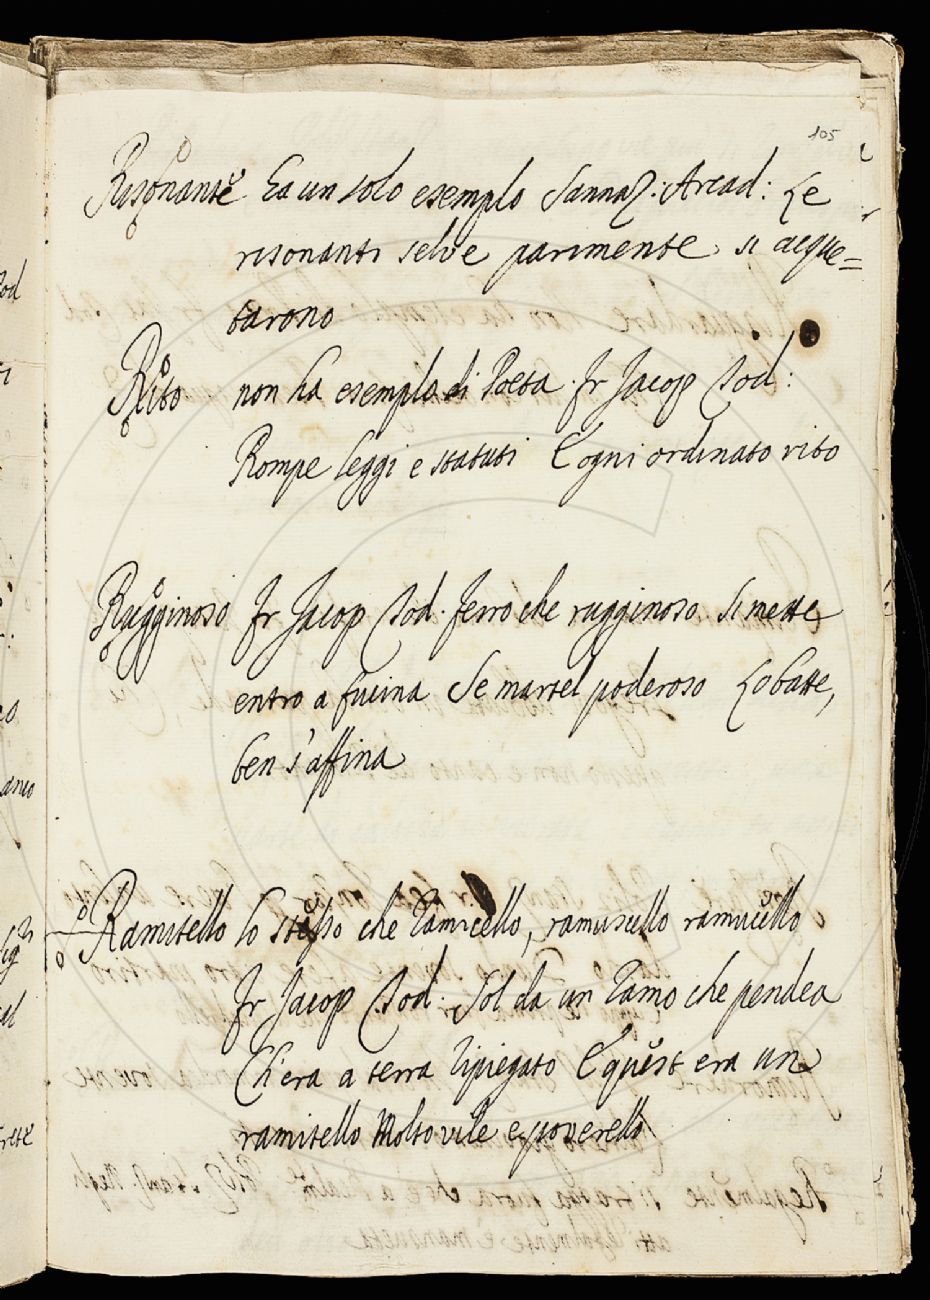 105
Risonante Ha un solo esempio Sannaz: Arcad: Le
risonanti selve parimente si acque=
tarono
Rito non ha esempio di Poeta. Fr Jacop Tod:
Rompe leggi e statuti E ogni ordinato rito
Rugginoso Fr Jacop Tod. Ferro che rugginoso Si mette
entro a fucina Se martel poderoso Lo batte,
ben s'affina
Ramitello lo stesso che ramicello, ramuscello ramucello
Fr Jacop Tod. Sol da un ramo che pendea
Ch'era a terra ripiegato E quest era un
ramitello Molto vile e poverello